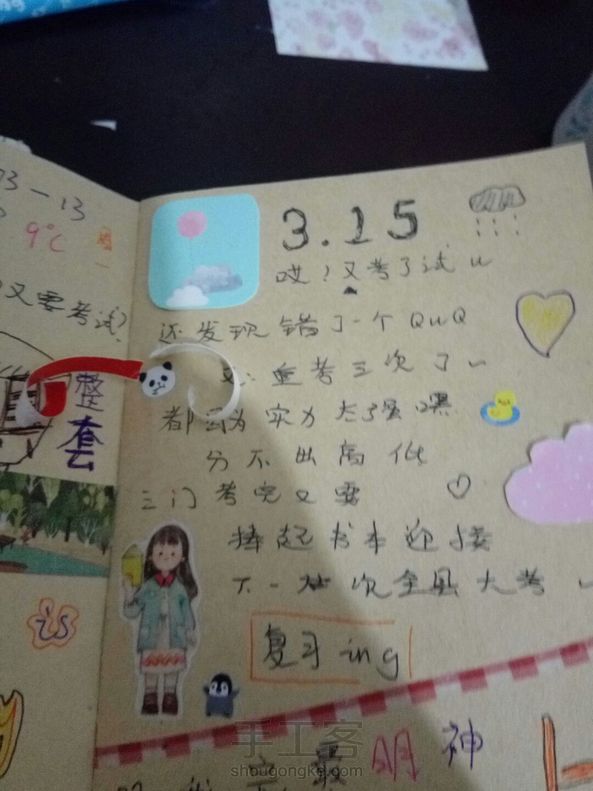 73-13
9°C
又要考试?
整
套
is
3.15
哎!又考了试
还发现错了一个QuQ
重考三次了~
都因为实力太强嘿
分不出高低
三门考完又要
捧起书本迎接
下一次全县大考
复习ing
最明神
手工客
shougongke.com